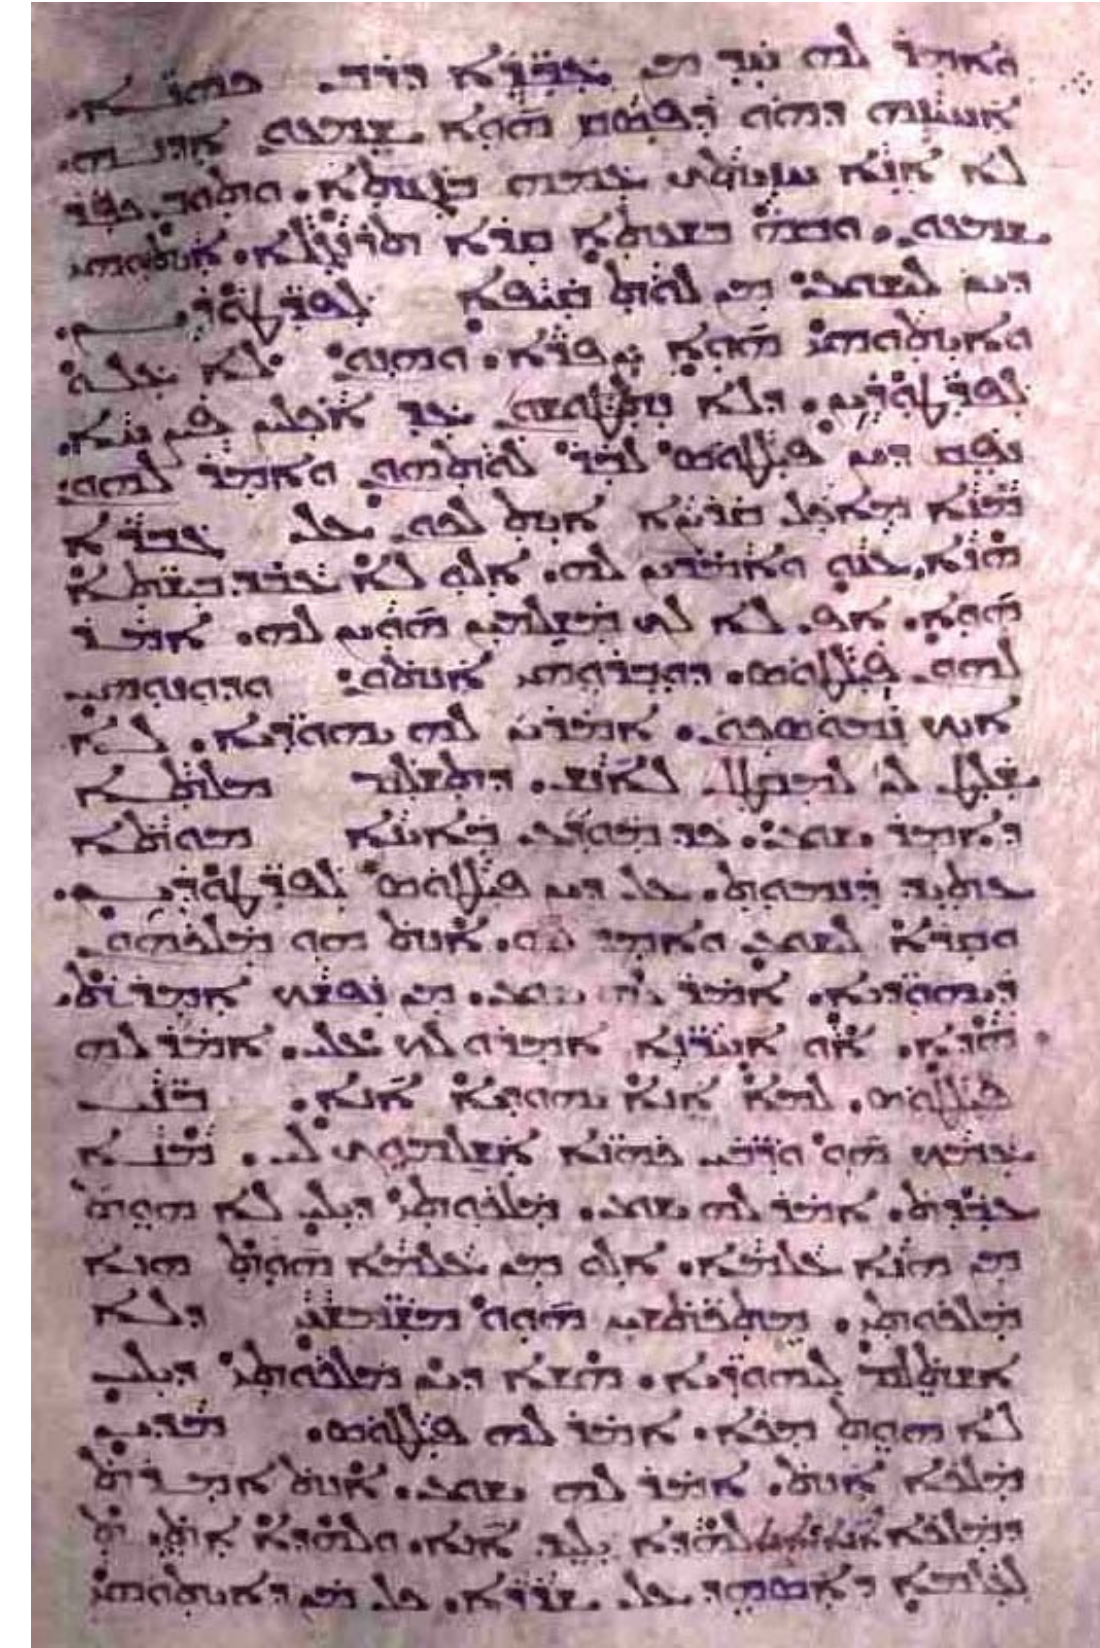 ܘܐܡܪ ܠܗ ܚܕ ܡܢ ܥܒܕ̈ܐ ܕܪܒ ܟܗܢ̈ܐ.
ܐܚܝܢܗ ܕܗܘ ܕܦܣܩ ܗܘܐ ܫܡܥܘܢ ܐܕܢܗ.
ܠܐ ܐܢܐ ܚܙܝܬܟ ܥܡܗ ܒܓܢܬܐ. ܘܬܘܒ ܟܦܪ
ܫܡܥܘܢ. ܘܒܗ ܒܫܥܬܐ ܩܪܐ ܬܪܢܓܠܐ. ܐܝܬܝܘܗܝ
ܕܝܢ ܠܝܫܘܥ ܡܢ ܠܘܬ ܩܝܦܐ ܠܦܪܛܘܪܝܢ.
ܘܐܝܬܘܗܝ ܗܘܐ ܨܦܪܐ. ܘܗܢܘܢ ܠܐ ܥܠܘ
ܠܦܪܛܘܪܝܢ. ܕܠܐ ܢܛܘܫܘܢ ܥܕ ܐܟܠܝܢ ܦܨܚܐ.
ܢܦܩ ܕܝܢ ܦܝܠܛܘܣ ܠܒܪ ܠܘܬܗܘܢ ܘܐܡܪ ܠܗܘܢ
ܡܢܐ ܡܐܟܠ ܩܪܨܐ ܐܝܬ ܠܟܘܢ ܥܠ ܓܒܪܐ
ܗܢܐ. ܥܢܘ ܘܐܡܪܝܢ ܠܗ. ܐܠܘ ܠܐ ܥܒܕ ܒܝܫܬܐ
ܗܘܐ. ܐܦ ܠܐ ܠܟ ܡܫܠܡܝܢ ܗܘܝܢ ܠܗ. ܐܡܪ
ܠܗܘܢ ܦܝܠܛܘܣ. ܕܘܒܪܘܗܝ ܐܢܬܘܢ ܘܕܘܢܘܗܝ
ܐܝܟ ܢܡܘܣܟܘܢ. ܐܡܪܝܢ ܠܗ ܝܗܘܕܝ̈ܐ. ܠܐ
ܫܠܝܛ ܠܢ ܠܡܩܛܠ ܠܐܢܫ. ܕܬܫܠܡ ܡܠܬܐ
ܕܐܡܪ ܝܫܘܥ. ܟܕ ܡܘܕܥ ܒܐܝܢܐ ܡܘܬܐ
ܥܬܝܕ ܕܢܡܘܬ. ܥܠ ܕܝܢ ܦܝܠܛܘܣ ܠܦܪܛܘܪܝܢ.
ܘܩܪܐ ܠܝܫܘܥ ܘܐܡܪ ܠܗ. ܐܢܬ ܗܘ ܡܠܟܗܘܢ
ܕܝܗܘܕܝ̈ܐ. ܐܡܪ ܠܗ ܝܫܘܥ. ܡܢ ܢܦܫܟ ܐܡܪܬ
ܗܕܐ. ܐܘ ܐܚܪ̈ܢܐ ܐܡܪܘ ܠܟ ܥܠܝ. ܐܡܪ ܠܗ
ܦܝܠܛܘܣ. ܠܡܐ ܐܢܐ ܝܗܘܕܝܐ ܐܢܐ. ܒܢܝ
ܥܡܟ ܗܘ ܘܪ̈ܒܝ ܟܗܢ̈ܐ ܐܫܠܡܘܟ ܠܝ. ܡܢܐ
ܥܒܕܬ. ܐܡܪ ܠܗ ܝܫܘܥ. ܡܠܟܘܬܝ ܕܝܠܝ ܠܐ ܗܘܬ
ܡܢ ܗܢܐ ܥܠܡܐ. ܐܠܘ ܡܢ ܥܠܡܐ ܗܘܬ ܗܢܐ
ܡܠܟܘܬܝ. ܡܬܟܬܫܝܢ ܗܘܘ ܡܫܡܫܢ̈ܝ ܕܠܐ
ܐܫܬܠܡ ܠܝܗܘܕܝ̈ܐ. ܗܫܐ ܕܝܢ ܡܠܟܘܬܝ ܕܝܠܝ
ܠܐ ܗܘܬ ܡܟܐ. ܐܡܪ ܠܗ ܦܝܠܛܘܣ. ܡܕܝܢ
ܡܠܟܐ ܐܢܬ. ܐܡܪ ܠܗ ܝܫܘܥ. ܐܢܬ ܐܡܪܬ
ܕܡܠܟܐ ܠܗܕܐ ܝܠܝܕ ܐܢܐ. ܘܠܗܕܐ ܐܬܝܬ
ܠܥܠܡܐ ܕܐܣܗܕ ܥܠ ܫܪܪܐ. ܟܠ ܡܢ ܕܐܝܬܘܗܝ